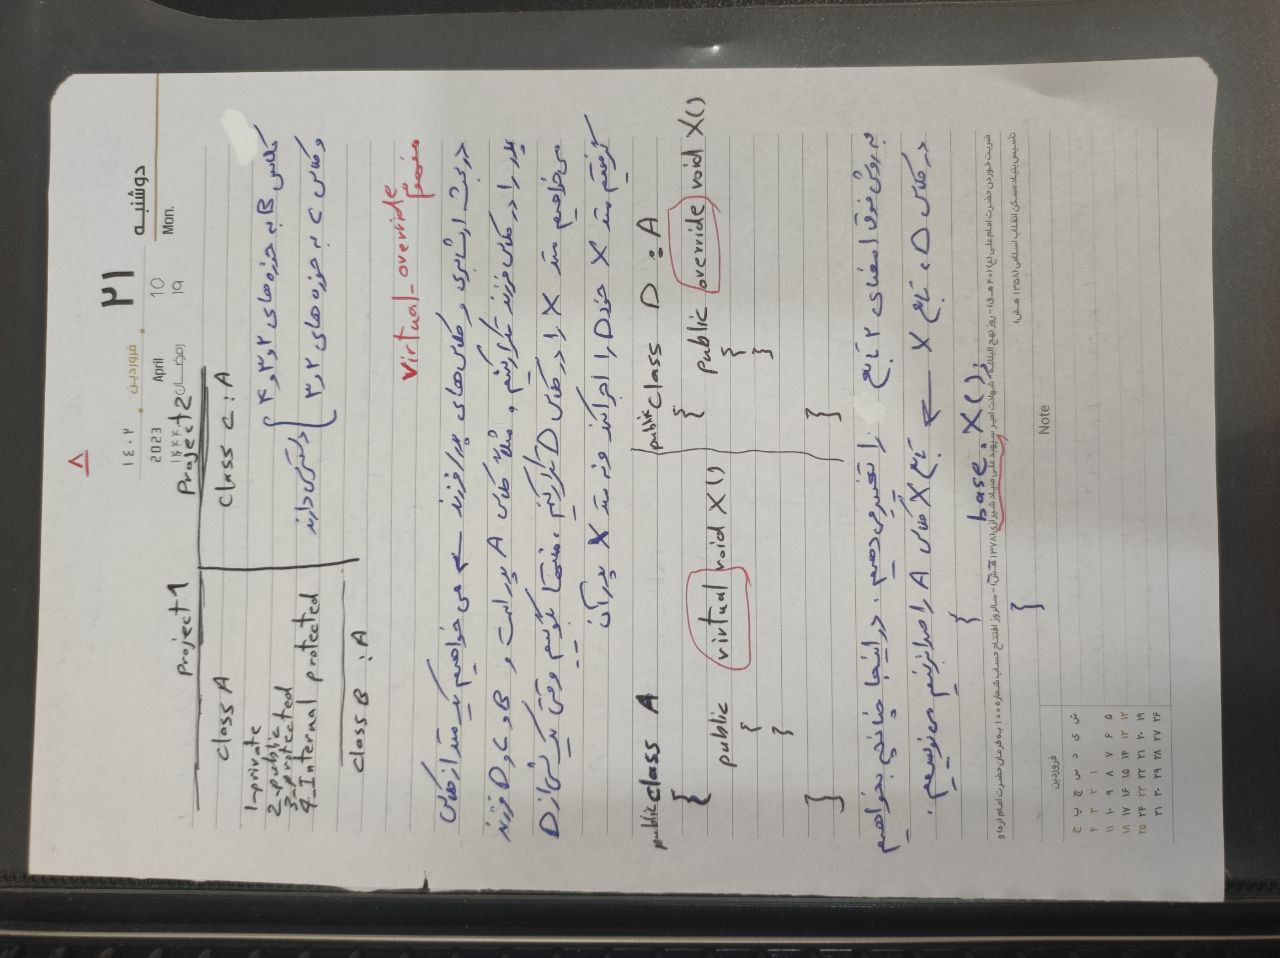 ۸
دوشنبه ۲۱ فروردین ۱۴۰۲
Mon. 10 April 2023
۱۹ رمضان ۱۴۴۴
Project1 Project2
class A
1-private
2-public
3-protected
4-Internal protected
class B : A
class C : A
کلاس B به حوزه های ۲ و ۳ و ۴
و کلاس C به حوزه های ۲ و ۳
دسترسی دارند
مفهوم virtual-override
در بحث ارث‌بری و کلاس‌های پدر/فرزند می خواهیم یک متد از کلاس
پدر را در کلاس فرزند تکرار کنیم. مثلاً کلاس A پدر است و B و C و D فرزند
می‌خواهیم متد X را در کلاس D تکرار کنیم، منتها بگوییم وقتی یک شی از D
گرفتیم متد X خود D را اجرا کند و نه متد X پدر آن
public class A
{
public virtual void X()
{
}
}
public class D : A
{
public override void X()
{
}
}
به روش فوق امضای ۲ تابع را تغییر می‌دهیم. در اینجا چنانچه بخواهیم
در کلاس D، تابع X ← تابع X کلاس A را صدا بزنیم می نویسیم.
{
base.X();
}
ضربت خوردن حضرت امام علی (ع) (۴۰ هـ.ق) - روز نهج البلاغه - شهادت امیر سپهبد علی صیاد شیرازی (۱۳۷۸ هـ.ش) - سالروز افتتاح حساب شماره ۱۰۰ به فرمان حضرت امام (ره) و
تأسیس بنیاد مسکن انقلاب اسلامی (۱۳۵۸ هـ.ش)
Note
فروردین
ش ی د س چ پ ج
۱ ۲ ۳ ۴
۵ ۶ ۷ ۸ ۹ ۱۰ ۱۱
۱۲ ۱۳ ۱۴ ۱۵ ۱۶ ۱۷ ۱۸
۱۹ ۲۰ ۲۱ ۲۲ ۲۳ ۲۴ ۲۵
۲۶ ۲۷ ۲۸ ۲۹ ۳۰ ۳۱